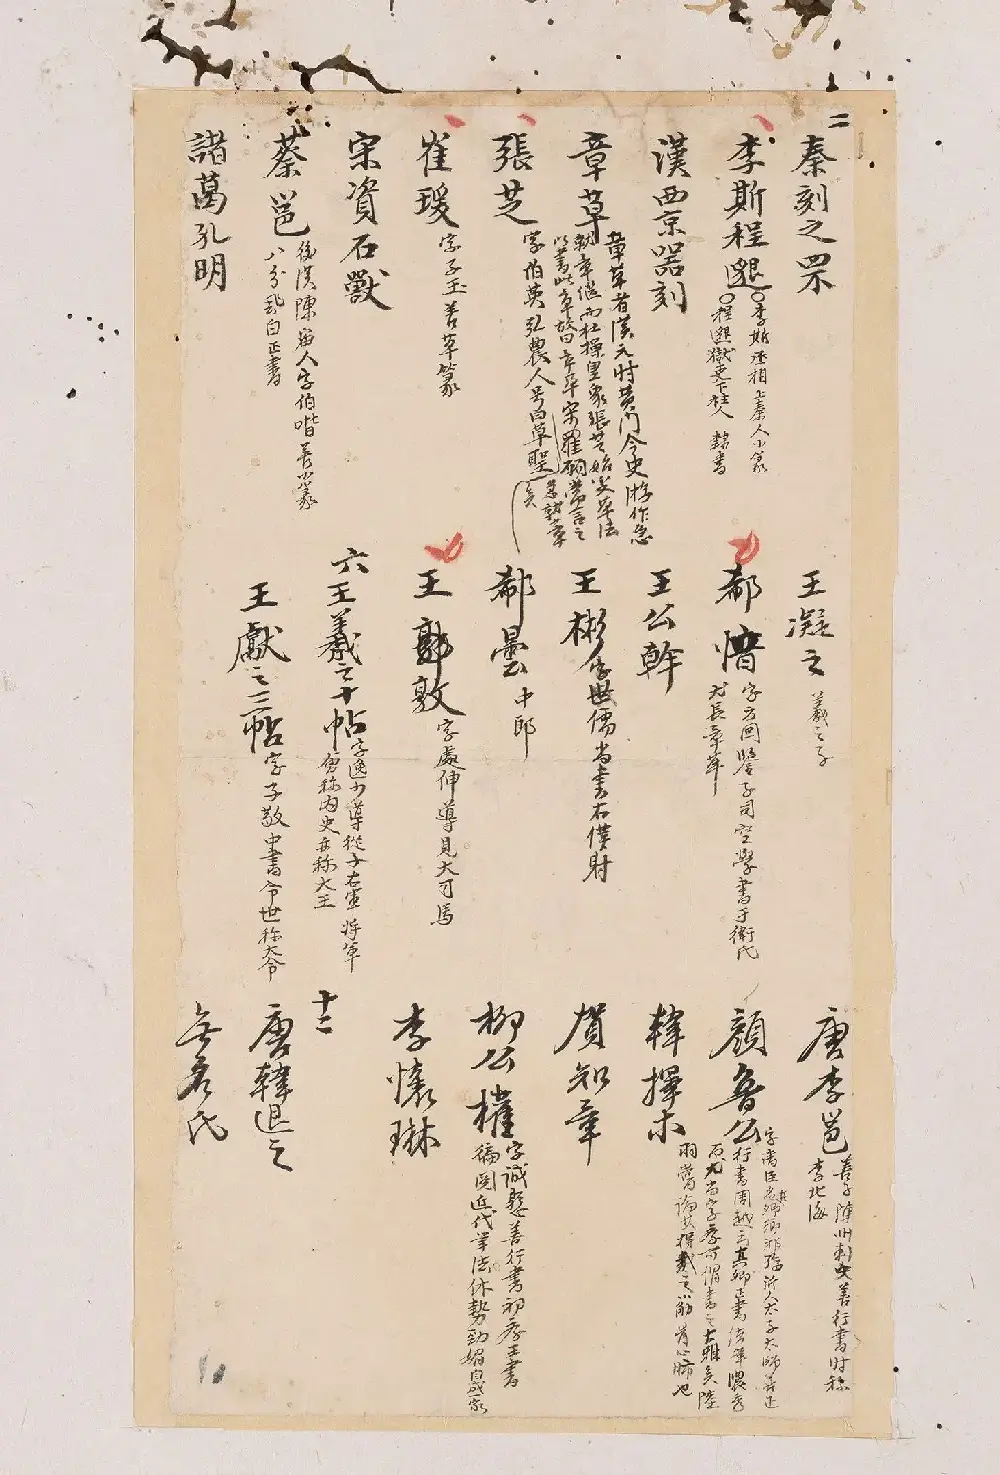 二
秦刻之罘
李斯程邈
○李斯丞相上秦人小篆
○程邈獄吏下杜人 隸書
漢西京器刻
章草
章草者漢元时黄门令史游作急
就章继而杜操皇象張芝始变草法
以書此章故曰章草宋羅願常言之
張芝
字伯英弘農人号曰草聖
崔瑗
字子玉善草篆
宋資石獸
蔡邕
後漢陳留人字伯喈善小篆
八分飛白正書
諸葛孔明
王凝之
羲之子
郗愔
字方回鑒子司空學書于衛氏
尤長章草
王公幹
王彬
字世儒尚書右僕射
郗曇
中郎
王敦
字處仲導兄大司馬
六
王羲之十帖
字逸少導從子右軍將軍
會稽内史亦称大王
王獻之二帖
字子敬中書令世称大令
唐李邕
善子陳州刺史善行書时称
李北海
顏魯公
韓擇木
賀知章
柳公權
字誠懸善行書初学王書
徧閱近代筆法体勢勁媚自成家
李懷琳
十二
唐韓退之
無名氏